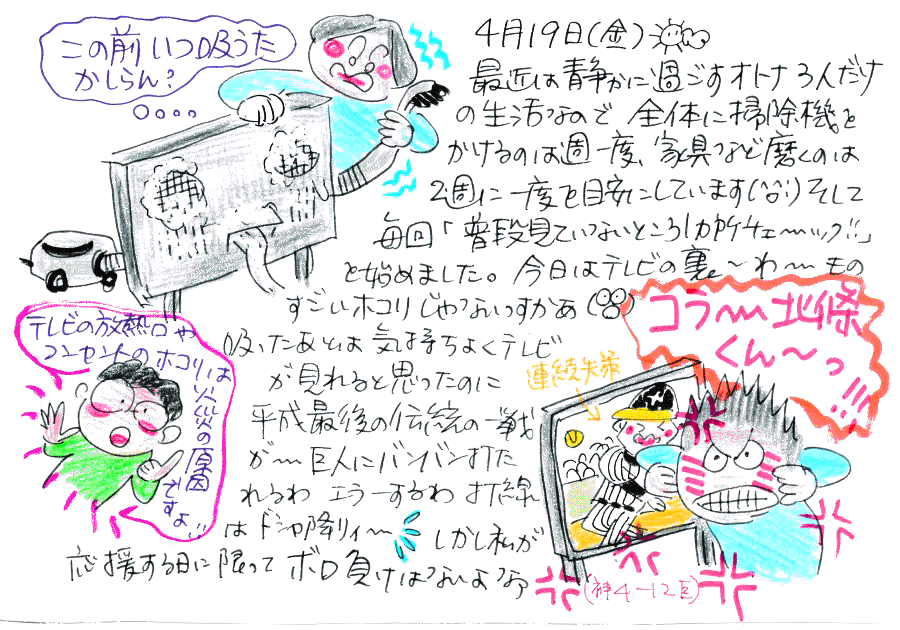 この前いつ吸うた
かしらん?
4月19日(金)
最近は静かに過ごすオトナ3人だけ
の生活なので 全体に掃除機を
かけるのは週一度、家具など磨くのは
2週に一度を目安にしています(^o^;)そして
毎回「普段見ていないところ1カ所チェーック!!」
を始めました。今日はテレビの裏を〜わ〜もの
すごいホコリじゃないっすかあ
吸ったあとは気持ちよくテレビ
が見れると思ったのに
平成最後の伝統の一戦
が〜巨人にバンバン打た
れるわ エラーするわ 打線
はドシャ降りィ〜 しかし私が
応援する日に限ってボロ負けはないよなぁ
テレビの放熱口や
コンセントのホコリは
火災の原因
ですよ!!
コラ〜北條
くん〜っ!!!
連続失策
(神4-12巨)